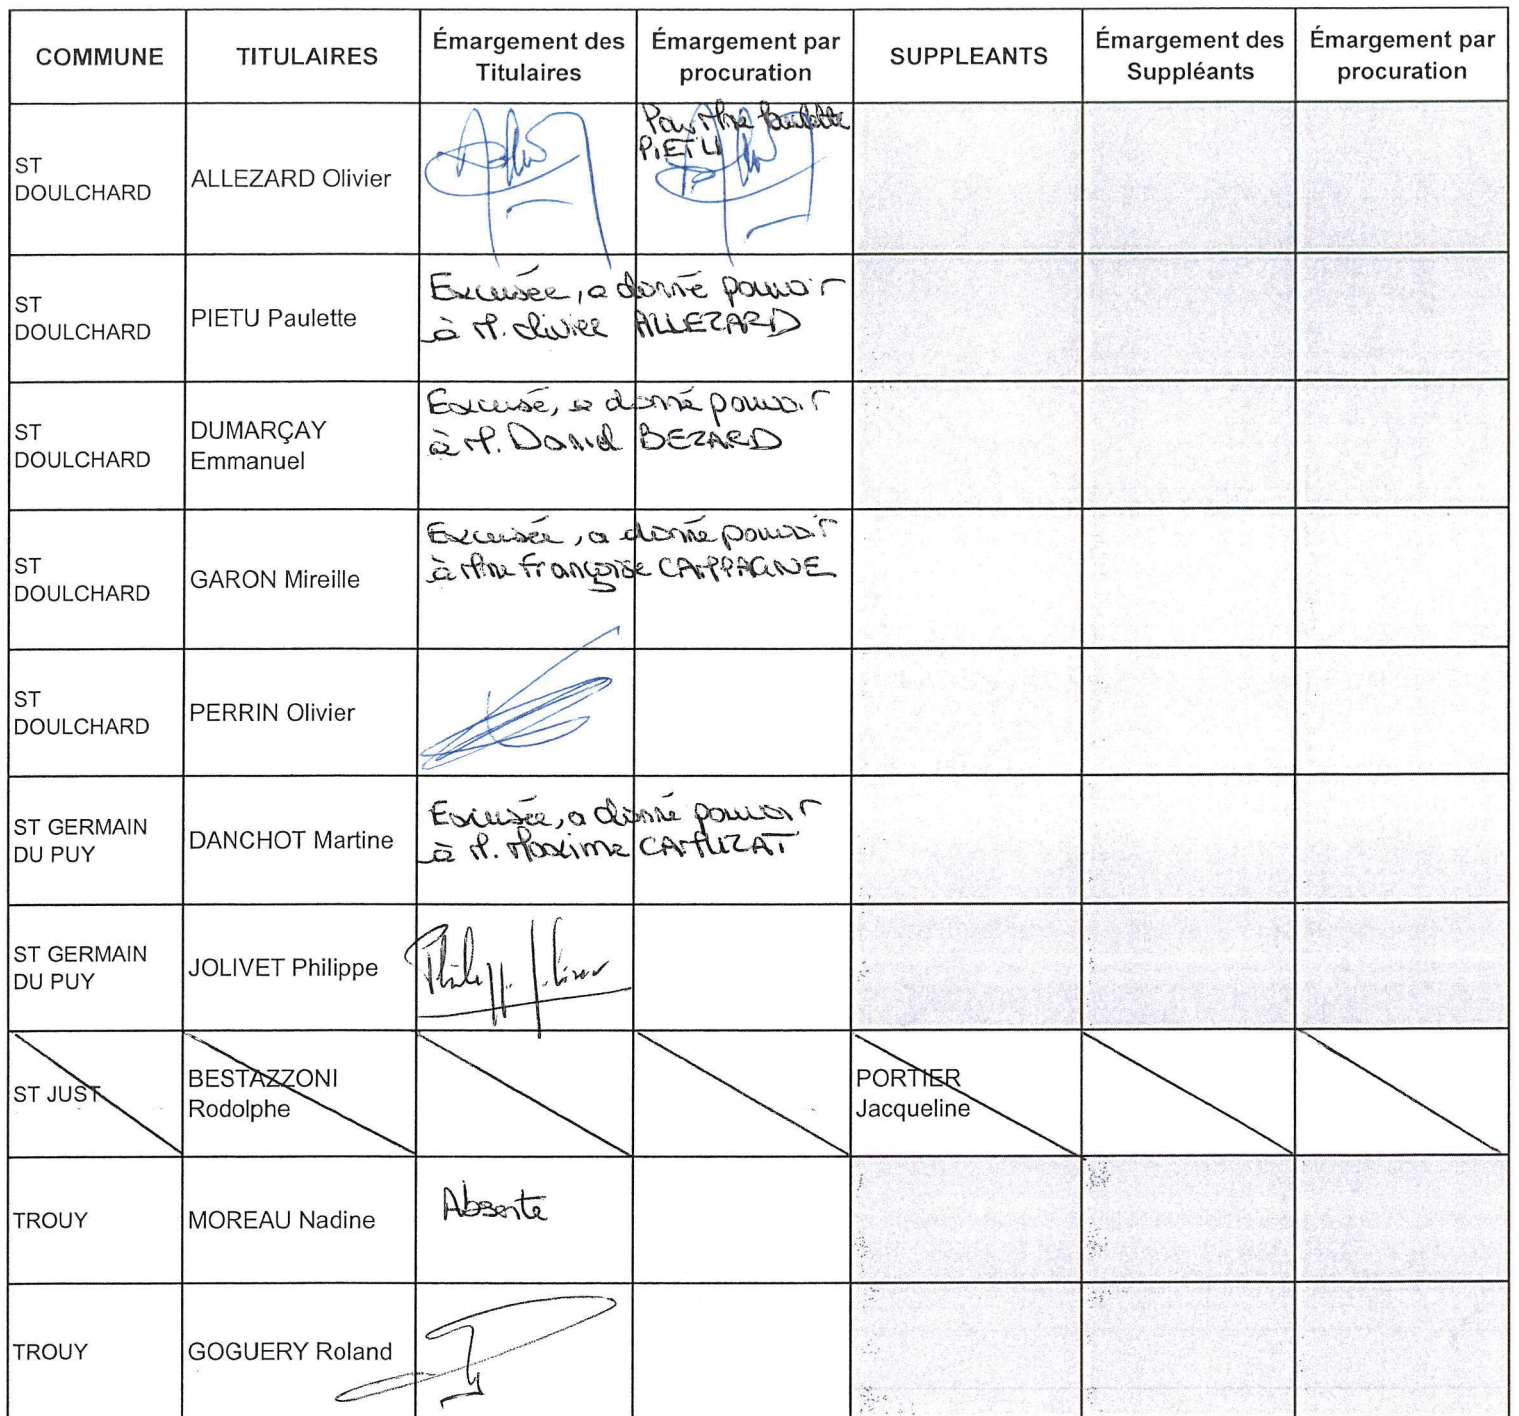 COMMUNE
TITULAIRES
Émargement des
Titulaires
Émargement par
procuration
SUPPLEANTS
Émargement des
Suppléants
Émargement par
procuration
ST
DOULCHARD
ALLEZARD Olivier
Pour Mme Paulette
PIETU
ST
DOULCHARD
PIETU Paulette
Excusée, a donné pouvoir
à M. Olivier ALLEZARD
ST
DOULCHARD
DUMARÇAY
Emmanuel
Excusé, a donné pouvoir
à M. Daniel BEZARD
ST
DOULCHARD
GARON Mireille
Excusée, a donné pouvoir
à Mme Françoise CAMPAGNE
ST
DOULCHARD
PERRIN Olivier
ST GERMAIN
DU PUY
DANCHOT Martine
Excusée, a donné pouvoir
à M. Maxime CAMUZAT
ST GERMAIN
DU PUY
JOLIVET Philippe
ST JUST
BESTAZZONI
Rodolphe
PORTIER
Jacqueline
TROUY
MOREAU Nadine
Absente
TROUY
GOGUERY Roland